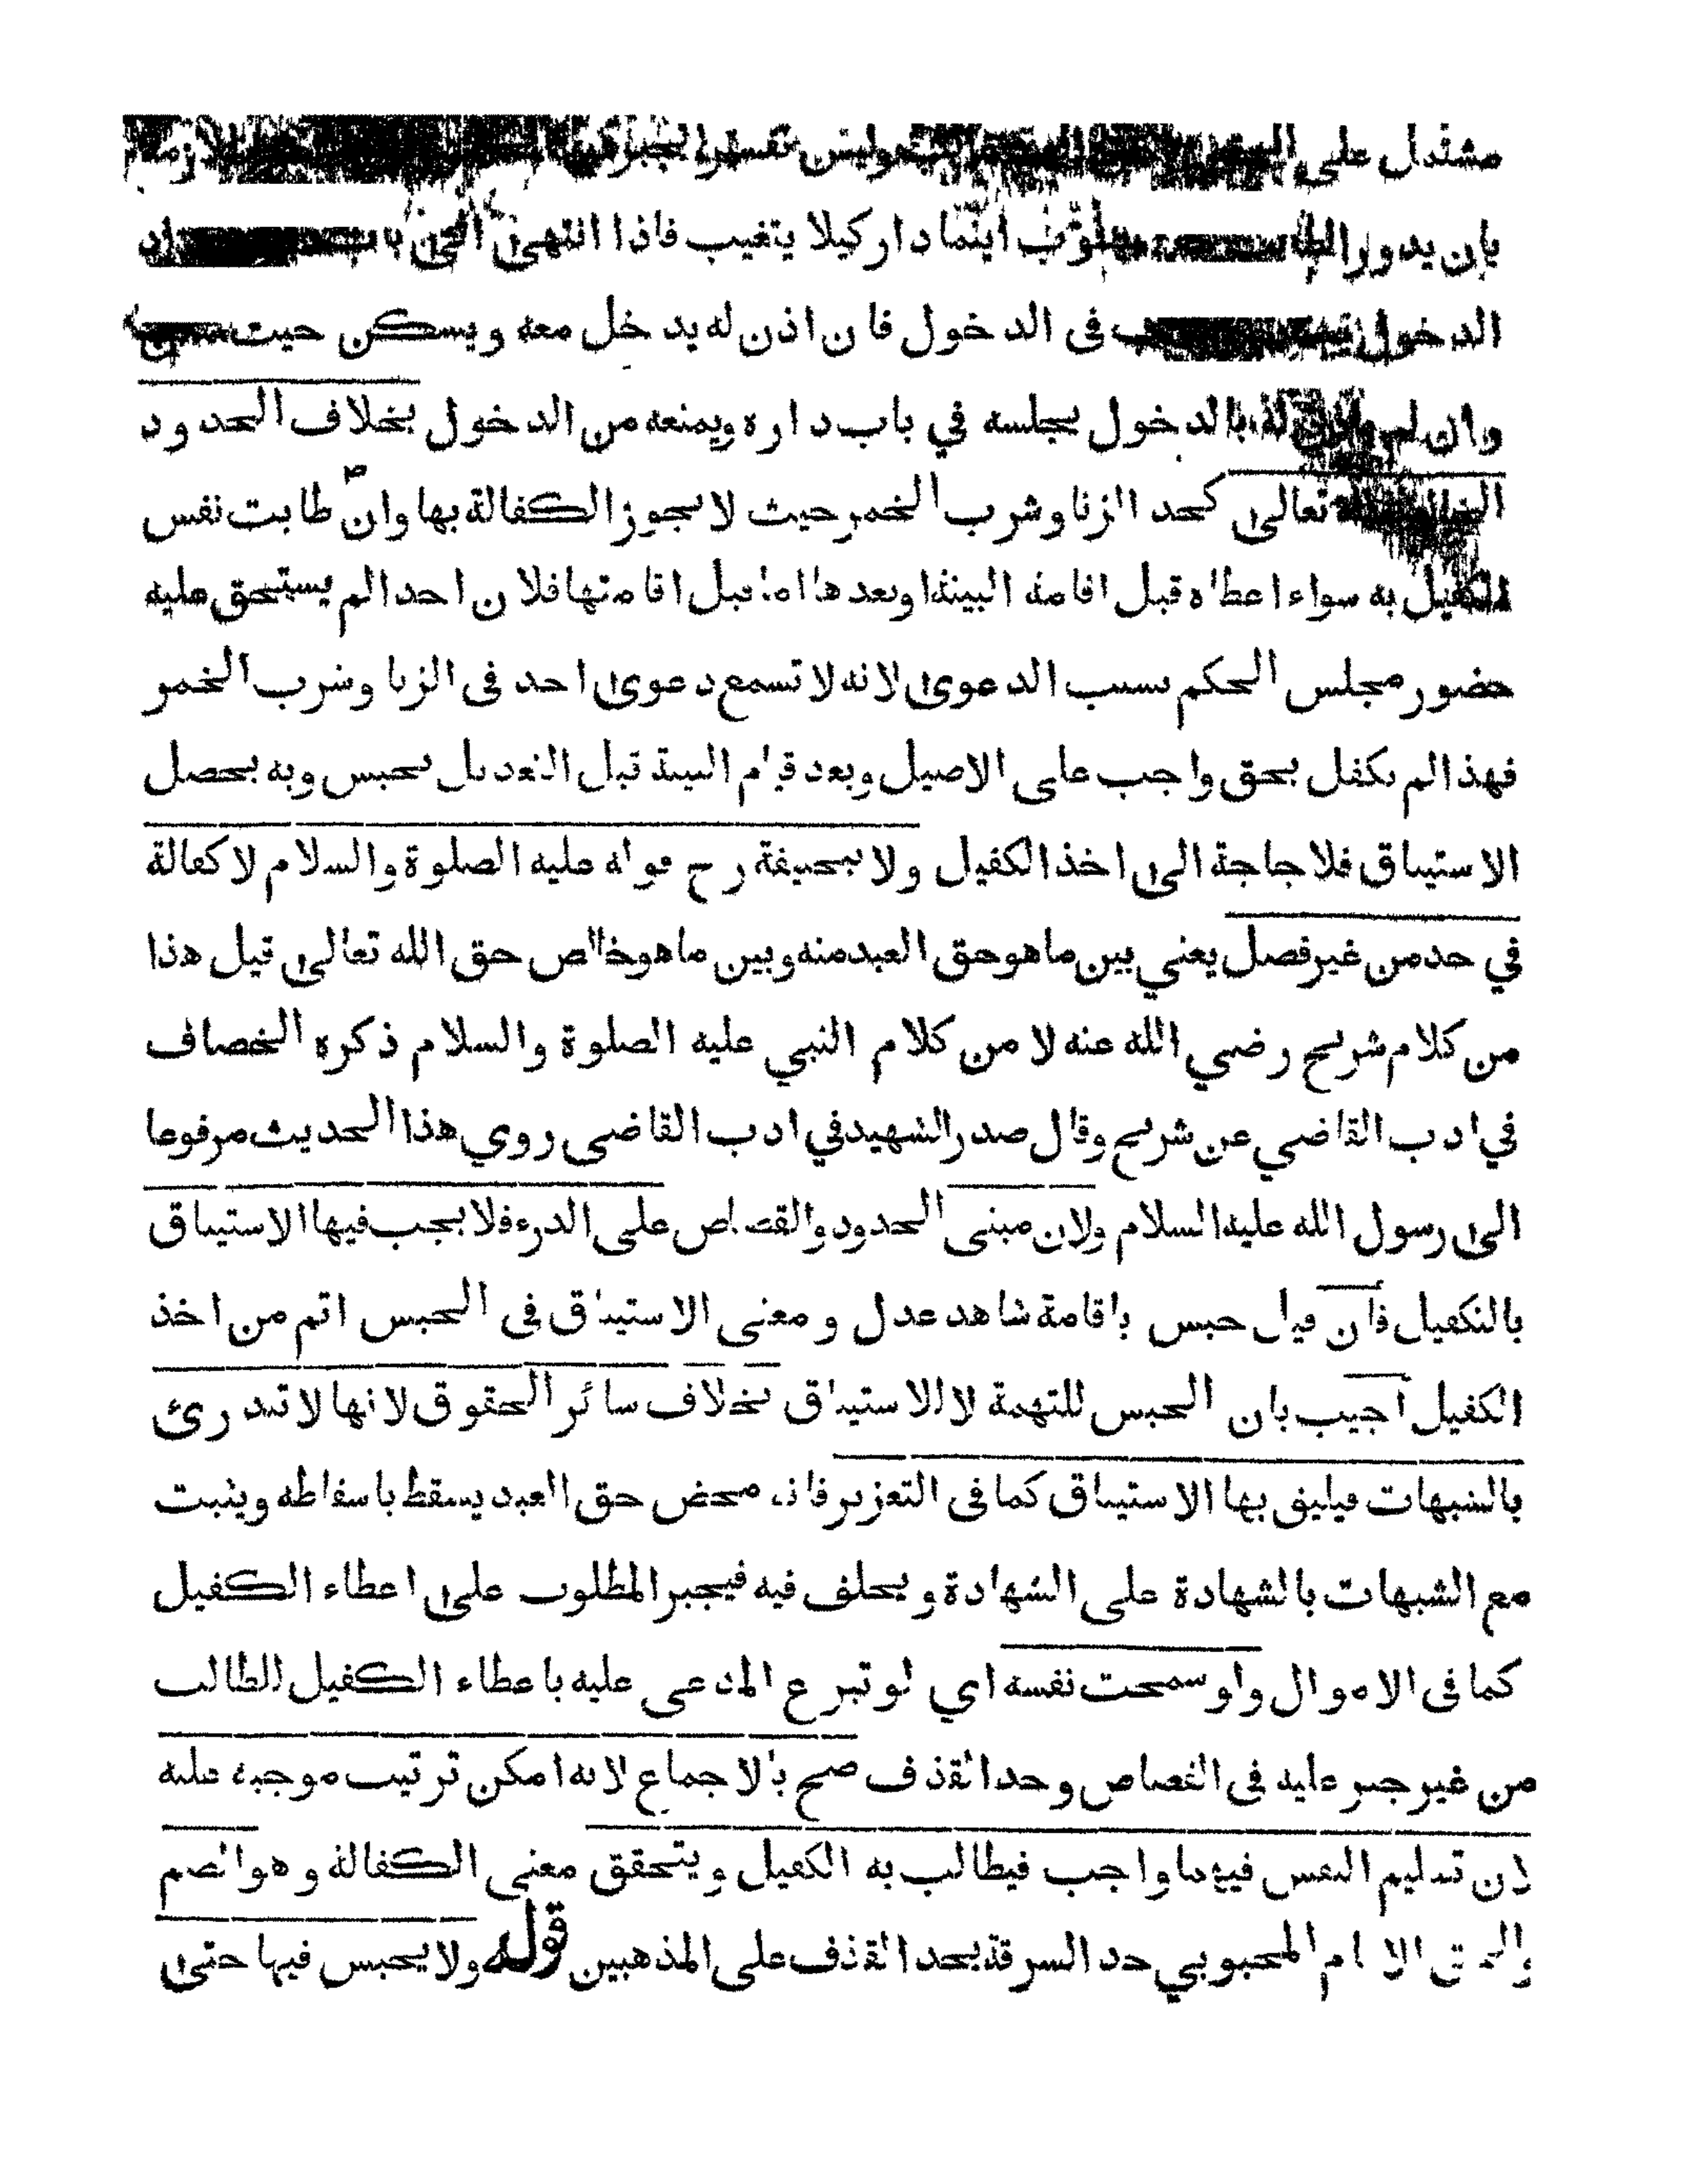 مشتمل على وليس تفسير الجبر
بان يدور اينما دار كيلا يتغيب فاذا انتهى الى باب
الدخول فى الدخول فان اذن له يدخل معه ويسكن حيث
وان لم بالدخول يجلسه في باب داره ويمنعه من الدخول بخلاف الحدود
تعالى كحد الزنا وشرب الخمر حيث لا يجوز الكفالة بها وان طابت نفس
الكفيل به سواء اعطاه قبل اقامة البينة او بعدها اما قبل اقامتها فلان احدا لم يستحق عليه
حضور مجلس الحكم بسبب الدعوى لانه لا تسمع دعوى احد فى الزنا وشرب الخمر
فهذا لم يكفل بحق واجب على الاصيل وبعد قيام البينة قبل التعديل يحبس وبه يحصل
الاستيباق فلا حاجة الى اخذ الكفيل ولابيحنيفة رح قوله عليه الصلوة والسلام لا كفالة
في حد من غير فصل يعني بين ما هو حق العبد منه وبين ما هو خالص حق الله تعالى قيل هذا
من كلام شريح رضي الله عنه لا من كلام النبي عليه الصلوة والسلام ذكره الخصاف
في ادب القاضي عن شريح وقال صدر الشهيد في ادب القاضى روي هذا الحديث مرفوعا
الى رسول الله عليه السلام ولان مبنى الحدود والقصاص على الدرء فلا يجب فيها الاستيباق
بالتكفيل فان قيل حبس باقامة شاهد عدل و معنى الاستيباق فى الحبس اتم من اخذ
الكفيل اجيب بان الحبس للتهمة لا للاستيباق بخلاف سائر الحقوق لانها لا تندرئ
بالشبهات فيليق بها الاستيباق كما فى التعزير فانه محض حق العبد يسقط باسقاطه ويثبت
مع الشبهات بالشهادة على الشهادة و يحلف فيه فيجبر المطلوب على اعطاء الكفيل
كما فى الاموال ولو سمحت نفسه اي لو تبرع المدعى عليه باعطاء الكفيل للطالب
من غير جبر عليه فى القصاص وحد القذف صح بالاجماع لانه امكن ترتيب موجبه عليه
لان تسليم النفس فيهما واجب فيطالب به الكفيل ويتحقق معنى الكفالة و هو الضم
والحق الامام المحبوبي حد السرقة بحد القذف على المذهبين قوله ولا يحبس فيها حتى